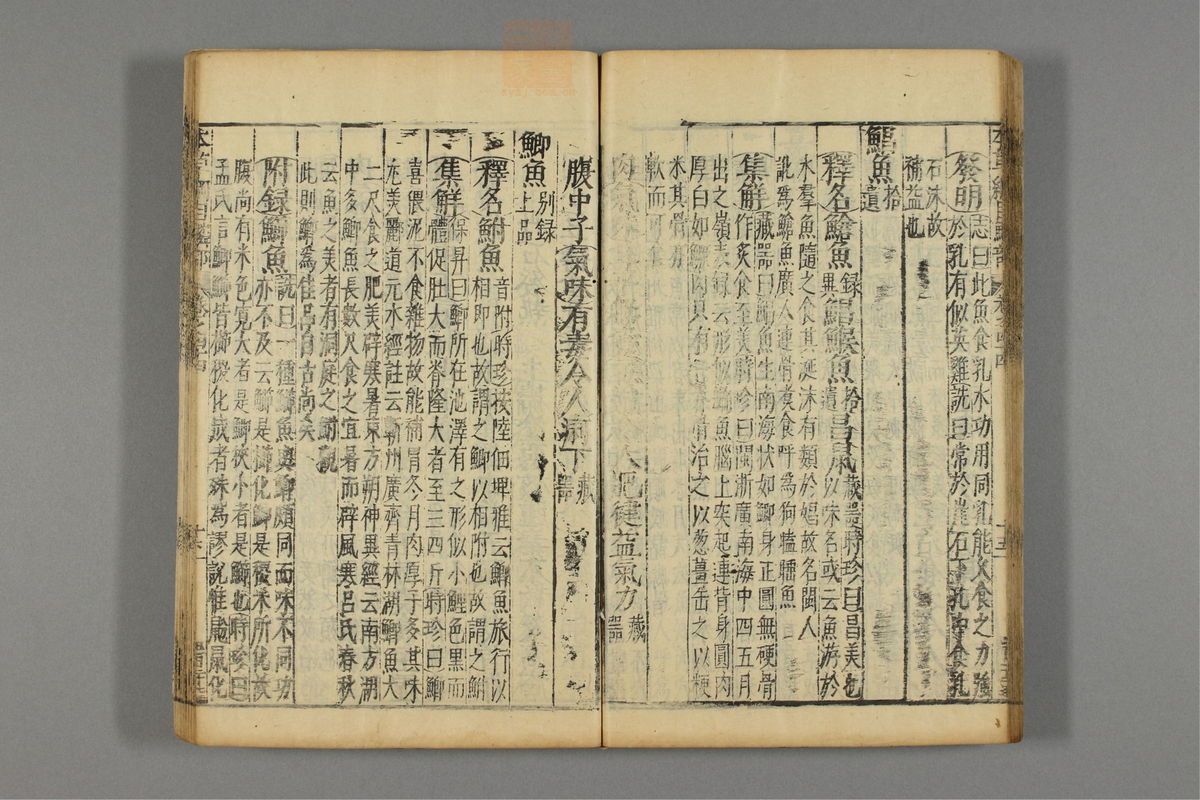 發明志曰此魚食乳水功用同乳能久食之力強
於乳有似英雞詵曰常於崖石下孔中食乳
石沫故
補益也
鯧魚拾遺
釋名鯧魚錄異鯧鯸魚拾遺昌鼠藏器時珍曰昌美也
以味名或云魚游於
水羣魚隨之食其涎沫有類於娼故名閩人
訛為鯧魚廣人連骨煑食呼為狗瞌睡魚
集解藏器曰鯧魚生南海狀如鯽身正圓無硬骨
作炙食至美時珍曰閩浙廣南海中四五月
出之嶺表録云形似鯿魚腦上突起連背身圓肉
厚白如鱖肉只有一脊骨治之以葱薑缶之以粳
米其骨亦
軟而可食
肉氣味
肥健益氣力藏器
腹中子氣味有毒令人痢下藏器
鯽魚别録上品
釋名鮒魚音附時珍按陸佃埤雅云鯽魚旅行以
相即也故謂之鯽以相附也故謂之鮒
集解保昇曰鯽所在池澤有之形似小鯉色黑而
體促肚大而脊隆大者至三四斤時珍曰鯽
喜偎泥不食雜物故能補胃冬月肉厚子多其味
尤美酈道元水經註云蘄州廣齊青林湖鯽魚大
二尺食之肥美辟寒暑東方朔神異經云南方湖
中多鯽魚長數尺食之宜暑而辟風寒吕氏春秋
云魚之美者有洞庭之鮒觀
此則鯽為佳品自古尚矣
附録鰤魚詵曰一種鰤魚與鯽頗同而味不同功
亦不及云鰤是櫛化鯽是稷米所化故
腹尚有米色寬大者是鯽狹小者是鰤也時珍曰
孟氏言鯽鰤皆櫛稷化成者殊為謬説惟鼠化